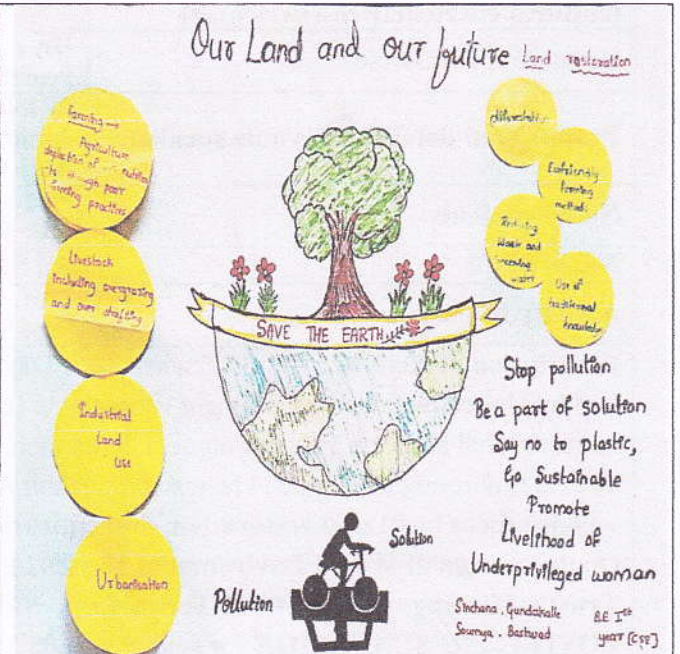 Our Land and our future Land restoration
Farming →
Agriculture
depletion of nutrition
through poor
farming practices
Livestock
including overgrazing
and over
Industrial
Land
Use
Urbanisation
SAVE THE EARTH
Ecofriendly
farming
methods
Reducing
waste and
water
Use of
traditional
knowledge
Stop pollution
Be a part of solution
Say no to plastic,
Go Sustainable
Promote
Livelihood of
Underprivileged woman
Solution
Pollution
Sinchana . Gundakalle
Soumya . Bastwad
B.E Ist
year [CSE]